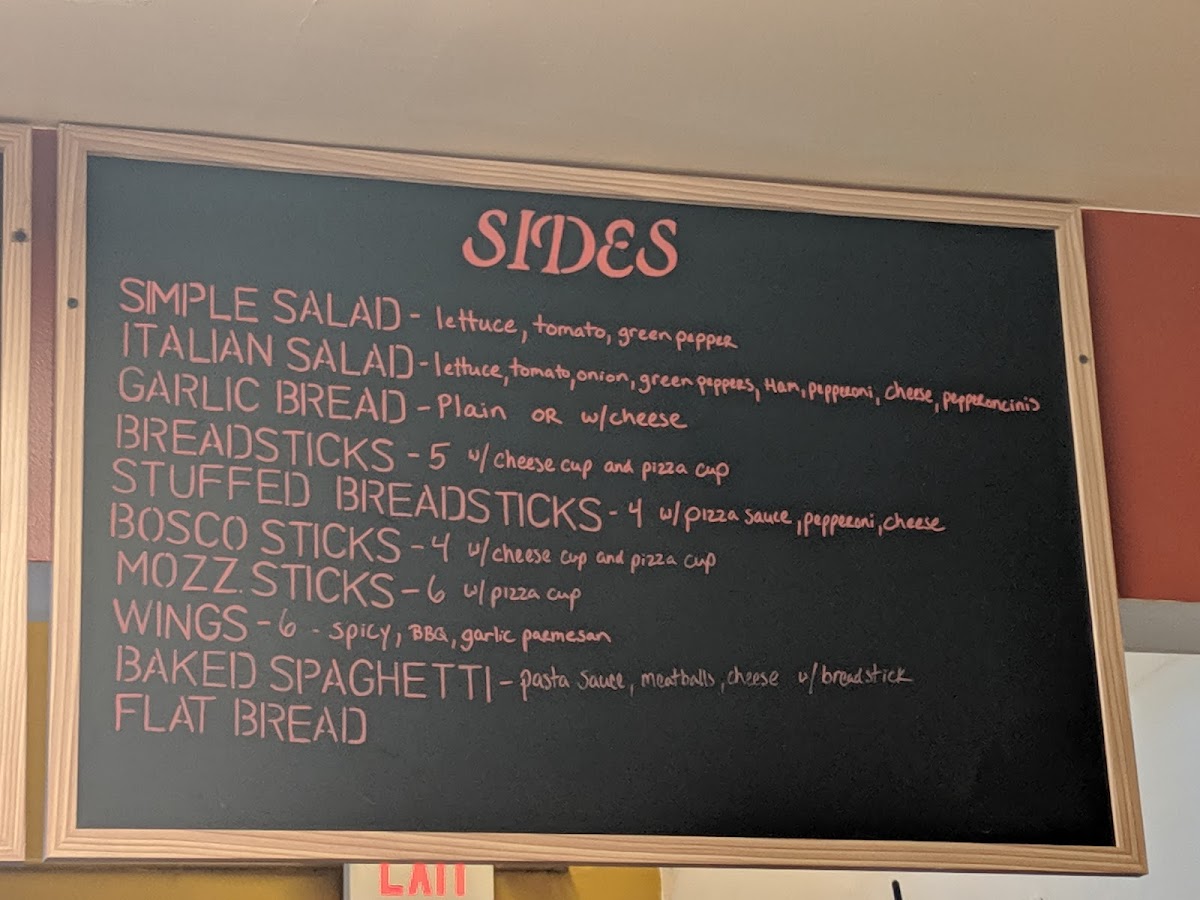 SIDES
SIMPLE SALAD - lettuce, tomato, green pepper
ITALIAN SALAD - lettuce, tomato, onion, green peppers, Ham, pepperoni, cheese, pepperoncinis
GARLIC BREAD - Plain OR w/cheese
BREADSTICKS - 5 w/ cheese cup and pizza cup
STUFFED BREADSTICKS - 4 w/ pizza sauce, pepperoni, cheese
BOSCO STICKS - 4 w/cheese cup and pizza cup
MOZZ. STICKS - 6 w/ pizza cup
WINGS - 6 - spicy, BBQ, garlic parmesan
BAKED SPAGHETTI - pasta sauce, meatballs, cheese w/ breadstick
FLAT BREAD
EXIT